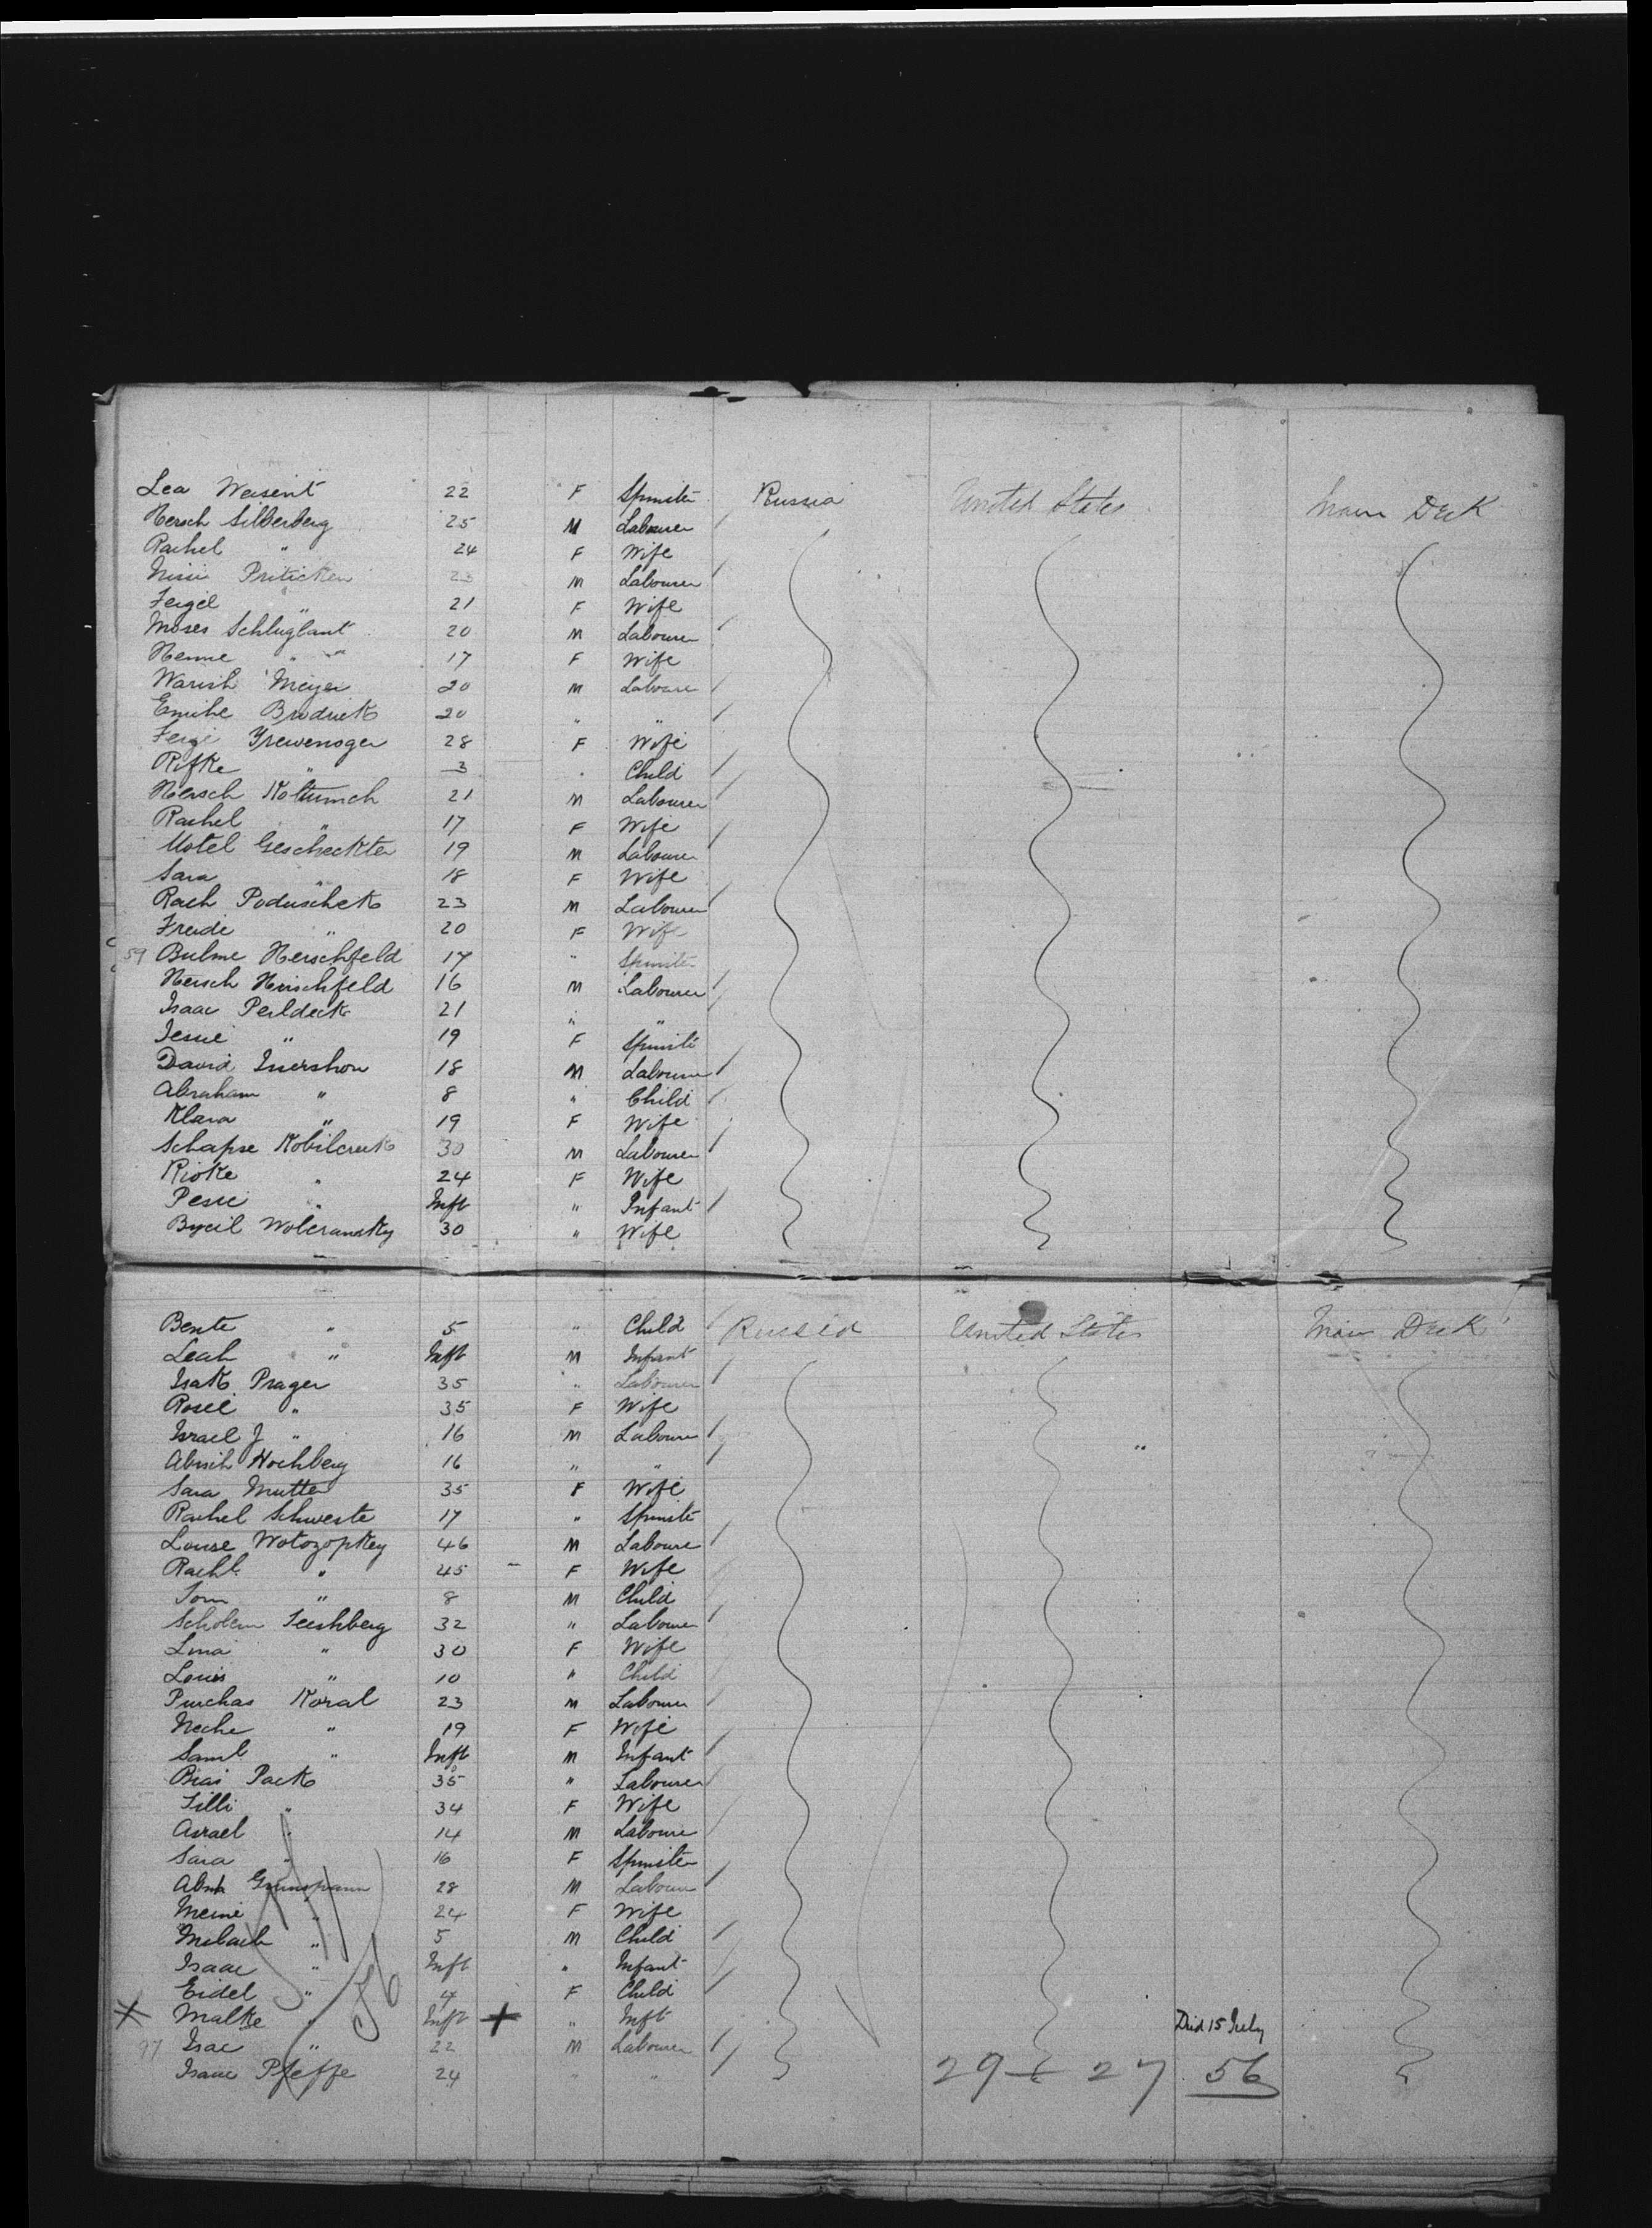 Lea Weisent 22 F Spinster Russia United States Main Deck
Hersch Silberberg 25 M Labourer
Rachel " 24 F Wife
Nissi Priticken 23 M Labourer
Feigel " 21 F Wife
Moses Schluglant 20 M Labourer
Henne " " 17 F Wife
Warish Meyer 20 M Labourer
Emihe Brodueck 20 " "
Feige Grewensger 28 F Wife
Rifke " 3 Child
Hersch Koltumch 21 M Labourer
Rachel " 17 F Wife
Motel Gescheckter 19 M Labourer
Sara " 18 F Wife
Rach Poduschek 23 M Labourer
Freide " 20 F Wife
59 Bulme Herschfeld 17 " Spinster
Hersch Hirschfeld 16 M Labourer
Isaac Perldeck 21 " "
Jessie " 19 F Spinste
David Issershon 18 M Labourer
Abraham " 8 " Child
Klara " 19 F Wife
Schapse Kobilcreck 30 M Labourer
Rioke " 24 F Wife
Pesse " Inft " Infant
Byeil Woleransky 30 " Wife
Bente " 5 " Child Russia United States Main Deck
Leah " Inft M Infant
Isak Prager 35 " Labourer
Rosie " 35 F Wife
Israel J " 16 M Labourer
Abisch Hochberg 16 " "
Sara Mutter 35 F Wife
Rachel Schweste 17 " Spinste
Louse Wotozopkey 46 M Laboure
Rachl " 45 F Wife
Tom " 8 M Child
Scholem Teeshberg 32 " Labourer
Lina " 30 F Wife
Louis " 10 " Child
Purchas Koral 23 M Labourer
Neche " 19 F Wife
Saml " Inft M Infant
Biai Pack 35 " Labourer
Tilli " 34 F Wife
Asrael " 14 M Laboure
Sara " 16 F Spinster
Abrah Grunspann 28 M Labourer
Meine " 24 F Wife
Misbach " 5 M Child
Isaac " Inft " Infant
Eidel " 4 F Child
X Malke " Inft + " Inft Died 15 July
97 Isac " 22 M Labourer
Isaac Pfeffe 24 " "
29 + 27 56
56